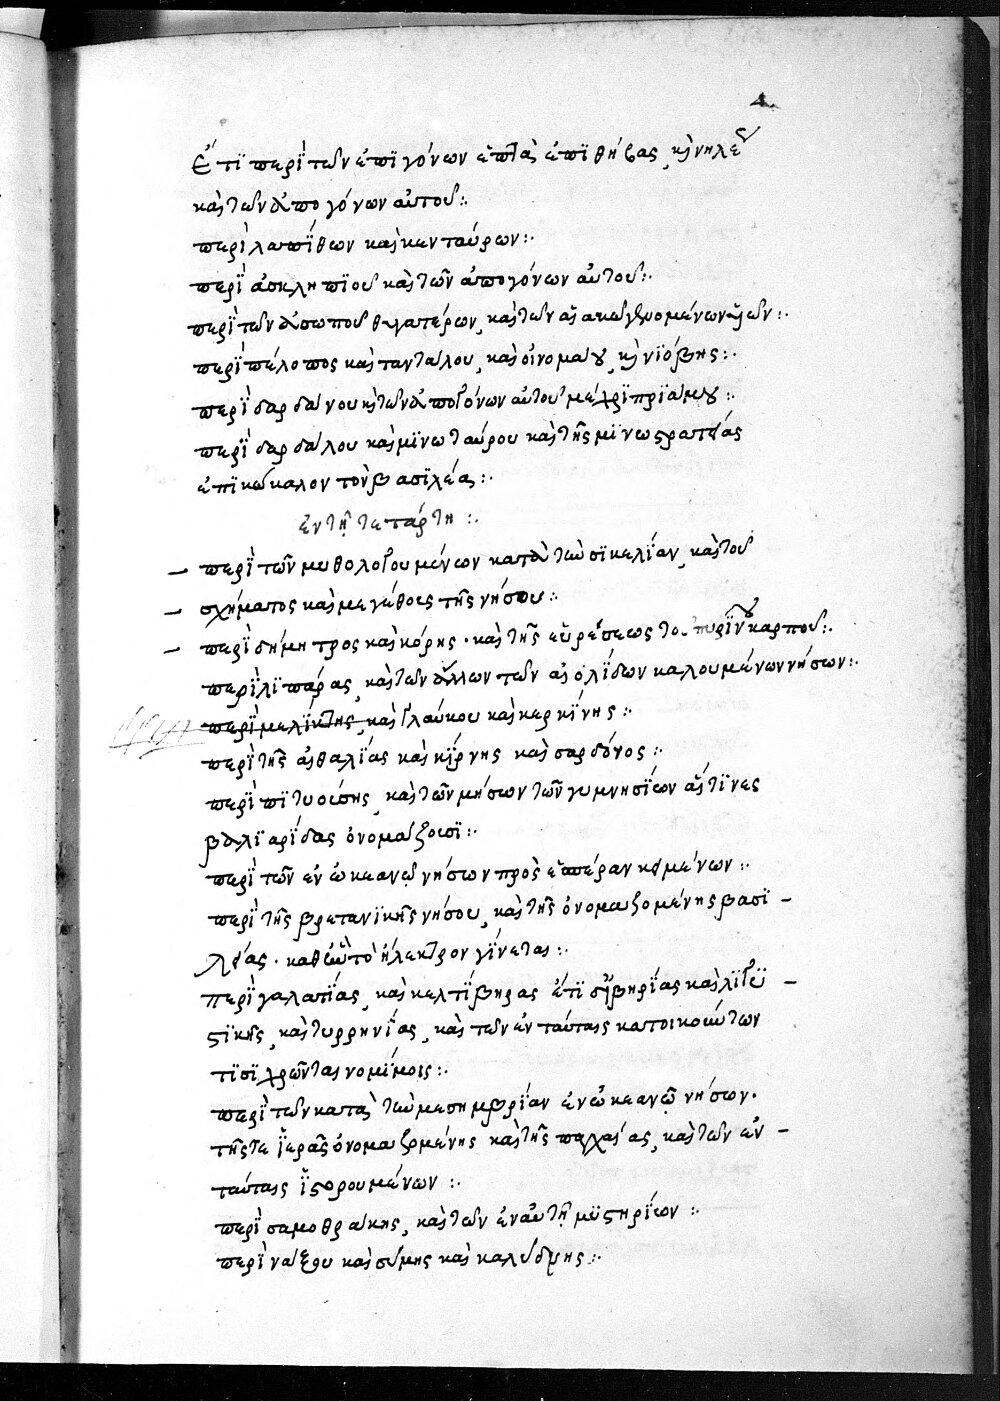 4
Ἔτϊ περῒ τῶν ἐπϊγόνων ἑπτὰ ἐπϊ θήβας, κὶ νηλέως
καὶ τῶν ἀπογόνων αὐτοῦ:.
περῒ λαπϊθων καὶ κενταύρων:.
περῒ ἀσκληπϊοῦ καὶ τῶν ἀπογόνων αὐτοῦ:.
περῒ τῶν ἀσωποῦ θυγατέρων, καὶ τῶν αἰακῶ γενομένων υἱῶν:.
περῒ πέλοπος καὶ ταντάλου, καὶ οἰνομάου, κὶ νϊόβης:.
περῒ δαρδάνου κὶ τῶν ἀπογόνων αὐτοῦ μέχρϊ πρϊάμου:.
περῒ δαρδάλου καὶ μϊνωταύρου καὶ τῆς μϊνω στρατείας
ἐπϊ κώκαλον τὸν βασϊλέα:.
ἐν τῇ τετάρτῃ:.
περῒ τῶν μυθολογουμένων κατὰ τὴν σϊκελίαν, καὶ τοῦ
σχήματος καὶ μεγέθους τῆς νήσου:.
περῒ δήμητρος καὶ κόρης. καὶ τῆς εὑρέσεως τοῦ πυρΐνου καρποῦ:.
περῒ λϊπάρας, καὶ τῶν ἄλλων τῶν αἰολίδων καλουμένων νήσων:.
περῒ μελίκτης, καὶ γλαύκου καὶ κερκϊνης:.
περῒ τῆς αἰθαλίας καὶ κΰρνης καὶ σαρδόνος:.
περῒ πϊτυούσης, καὶ τῶν νήσων τῶν γυμνησίων ἃς τϊνες
βαλϊαρίδας ὀνομάζουσϊ:.
περῒ τῶν ἐν ὠκεανῷ νήσων πρὸς ἑσπέραν κειμένων:.
περῒ τῆς βρετανϊκῆς νήσου, καὶ τῆς ὀνομαζομένης βασϊ -
λείας. καθ' ἣν τὸ ἤλεκτρον γίνεται:.
περῒ γαλατίας, καὶ κελτϊβηρας ἔτϊ δ' ϊβηρίας καὶ λϊγϋ -
στϊκῆς, καὶ τυρρηνίας, καὶ τῶν ἐν ταύταις κατοικούντων
τϊσϊ χρῶνται νομϊμοις:.
περῒ τῶν κατὰ τὴν μεσημβρίαν ἐν ὠκεανῷ νήσων.
τῆς τε ϊερᾶς ὀνομαζομένης καὶ τῆς παγχαίας, καὶ τῶν ἐν -
ταύταις ϊστορουμένων:.
περῒ σαμοθράκης, καὶ τῶν ἐν αὐτῇ μϋστηρίων:.
περῒ νάξου καὶ σύμης καὶ καλύδνης:.